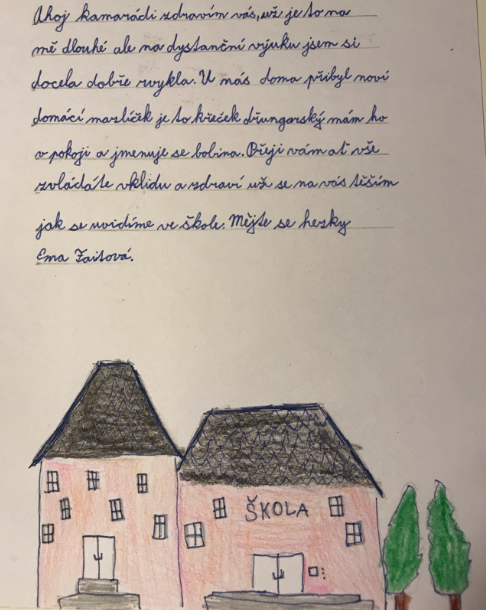 Ahoj kamarádi zdravím vás, už je to na
mě dlouhé ale na dystanční výuku jsem si
docela dobře zvykla. U nás doma přibyl noví
domácí mazlíček je to křeček džungarský mám ho
v pokoji a jmenuje se bobina. Přeji vám ať vše
zvládáte vklidu a zdraví už se na vás těším
jak se uvidíme ve škole. Mějte se hezky
Ema Zaitová.
ŠKOLA